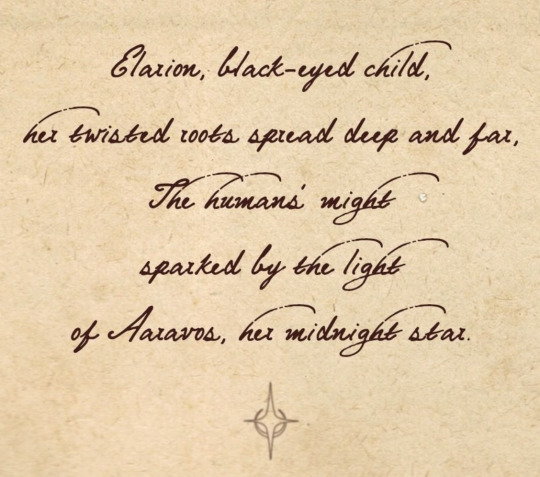 Elarion, black-eyed child,
her twisted roots spread deep and far,
The humans' might
sparked by the light
of Aaravos, her midnight star.